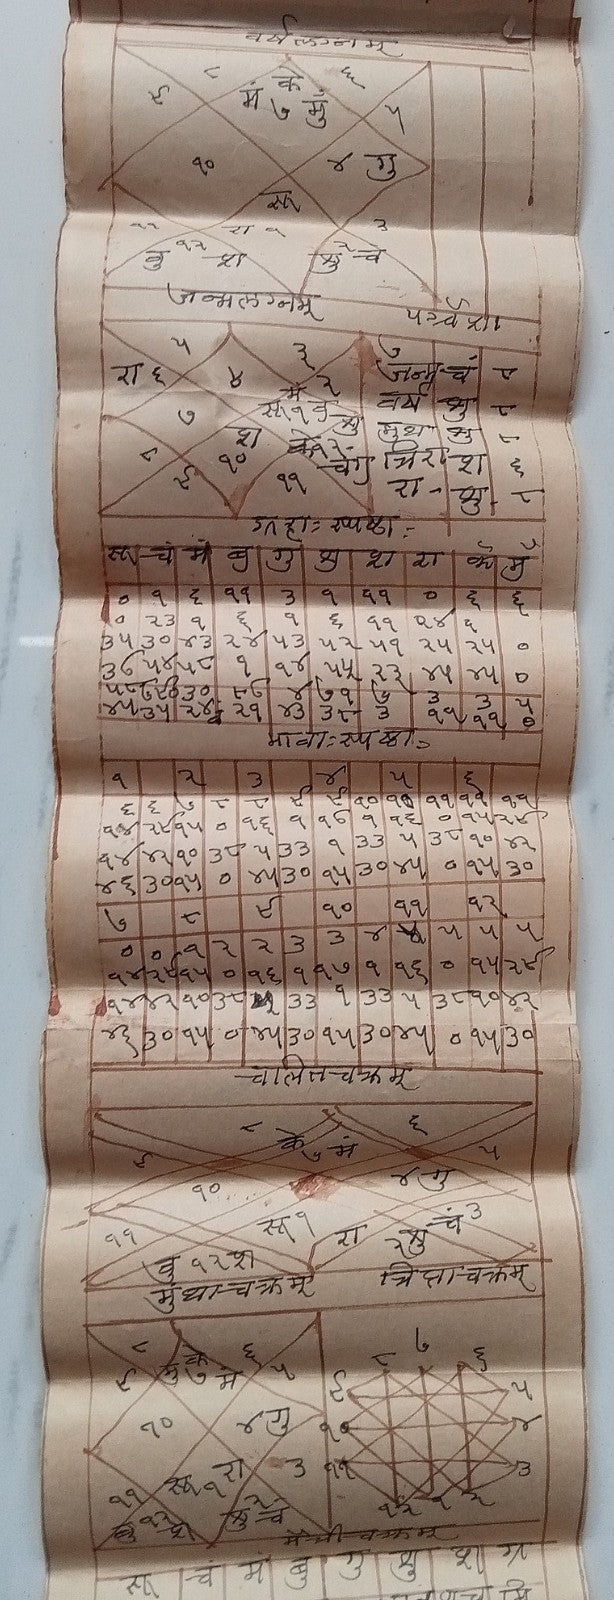 वर्षलग्नम्
८ के ६
९ मं ७ मुं ५
१० ४ गु
सू
११ रा १ ३
बु १२ श शु २ चं
जन्मलग्नम्
५ ३
रा ६ ४ जन्म चं ८
मं २ वर्ष शु ८
७ सू १ बु शु
८ श १० त्रिरा श ६
९ ११ रा शु ८
ग्रहाः स्पष्टाः
सू चं मं बु गु शु श रा के मुं
० १ ६ ११ ३ १ ११ ० ६ ६
० २३ १ ६ १ ६ ११ २४
३५ ३० ४३ २४ ५३ ५२ ५१ २५ २५ ०
३६ ५४ ५८ १ १४ ५५ २२ ४५ ४५ ०
४५ ३५ २४ २१ ४३ ३८ ३ ११ ११ ०
भावाः स्पष्टाः
१ २ ३ ४ ५ ६
६ ६ ७ ८ ८ ९ ९ १० १० ११ ११ ११
१४ २९ १५ ० १६ १ १६ १ १६ ० १५ २९
१४ ४२ १० ३८ ५ ३३ १ ३३ ५ ३८ १० ४२
४६ ३० १५ ० ४५ ३० १५ ३० ४५ ० १५ ३०
७ ८ ९ १० ११ १२
० ० १ २ २ ३ ३ ४ ४ ५ ५ ५
१४ २९ १५ ० १६ १ १७ १ १६ ० १५ २९
१४ ४२ १० ३८ ३३ १ ३३ ५ ३८ १० ४२
४६ ३० १५ ० ४५ ३० १५ ३० ४५ ० १५ ३०
चलितचक्रम्
८ ६
९ के ७ मं ५
१० ४ गु
११ सू १ रा २ शु चं ३
बु १२ श
मुंथाचक्रम् त्रिपताचक्रम्
८ के ६ ८ ७ ६
९ मु ७ मं ५ ९ ५
१० ४ गु १० ४
११ सू १ रा ३ ११ ३
बु १२ श शु २ चं १२ १ २
मैत्रीचक्रम्
सू चं मं बु गु शु श ग्र